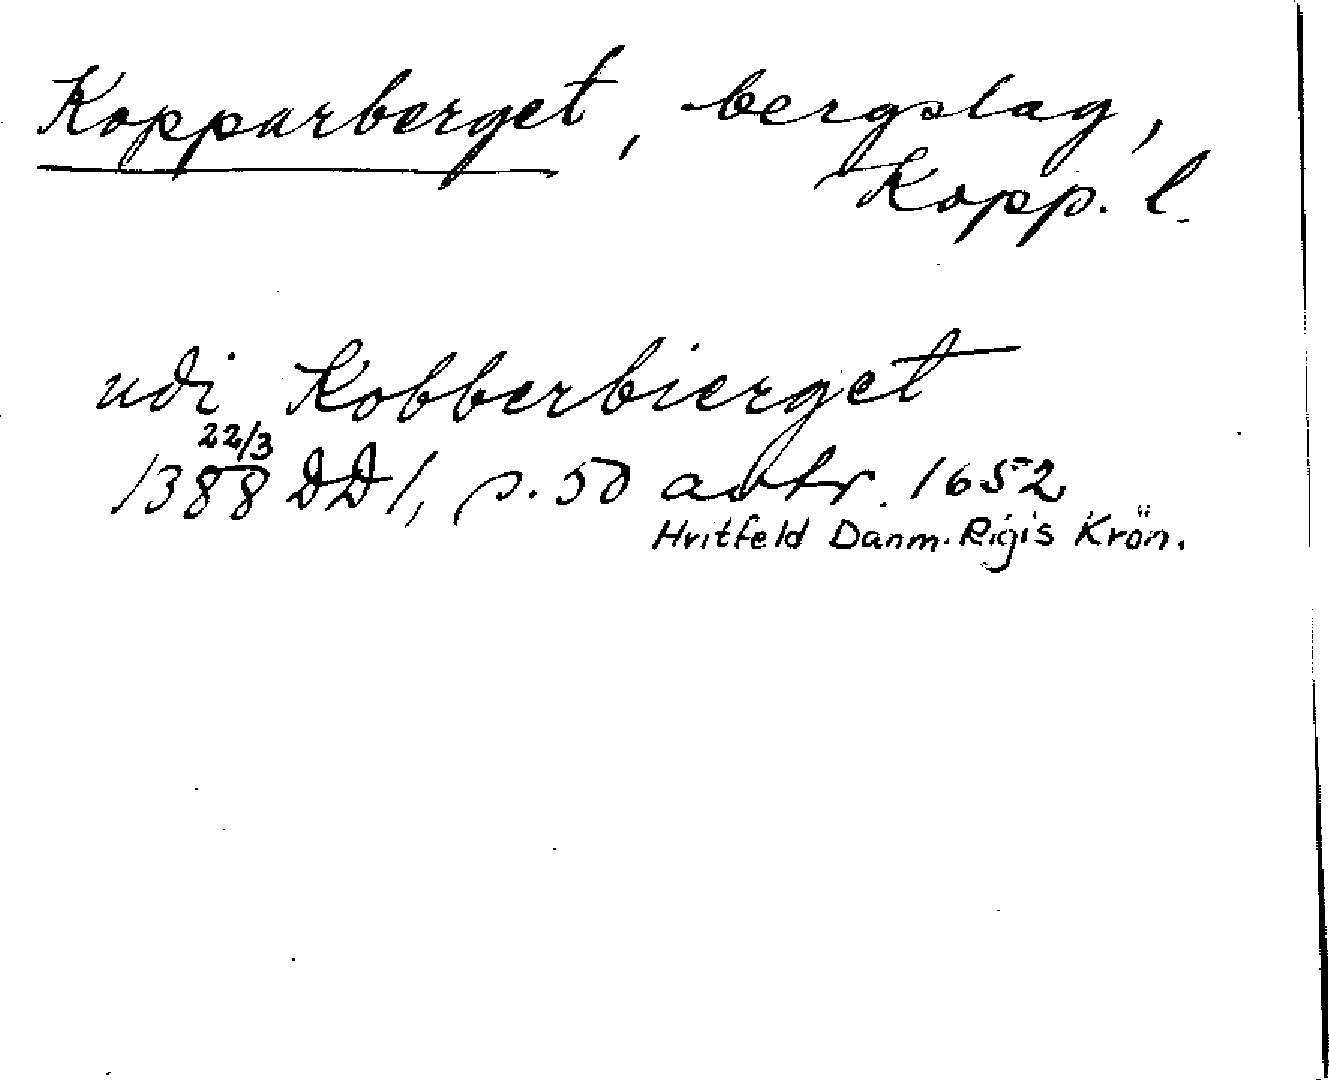 Kopparberget, bergslag,
Kopp. l.
udi Kobberbierget
22/3
1388 DD1, s. 50 avtr. 1652
Hvitfeld Danm. Rigis Krön.